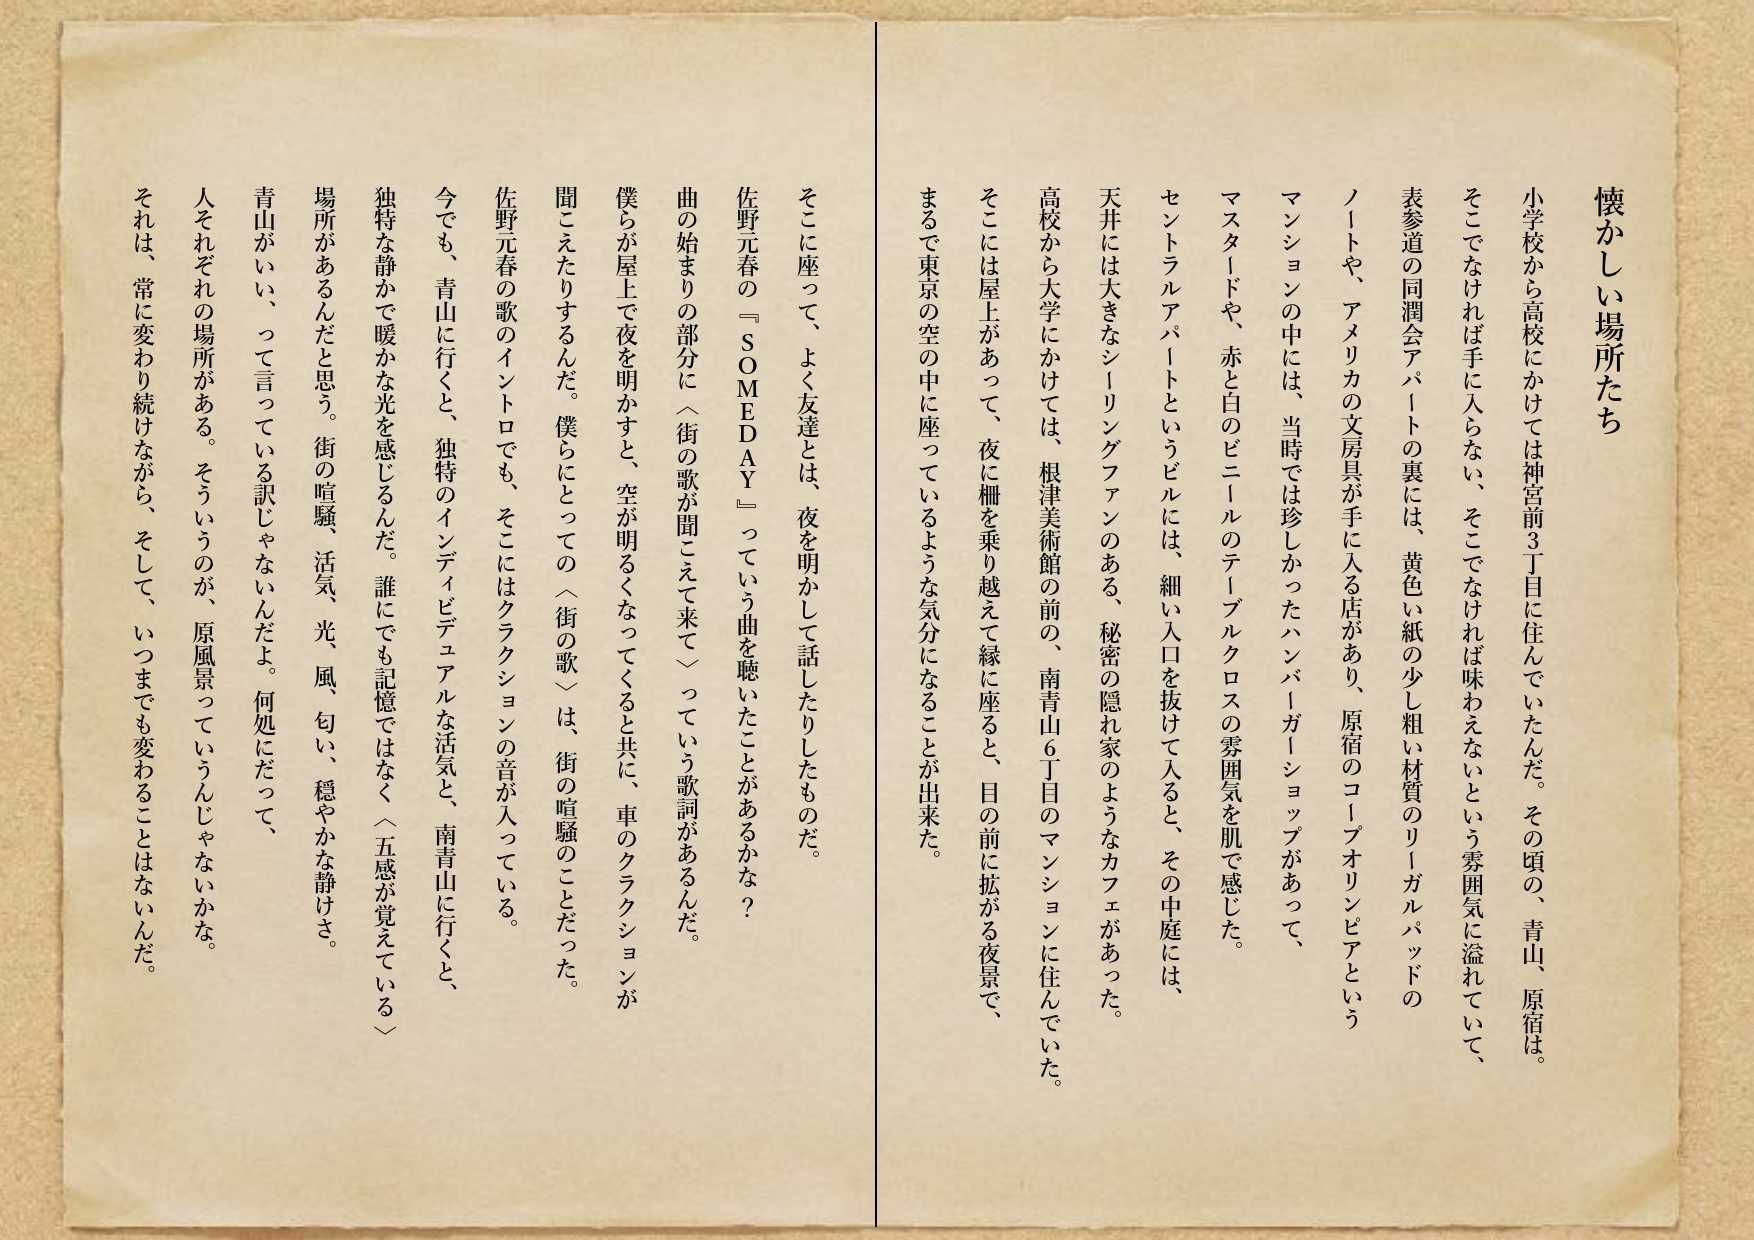 懐かしい場所たち
小学校から高校にかけては神宮前3丁目に住んでいたんだ。その頃の、青山、原宿は。
そこでなければ手に入らない、そこでなければ味わえないという雰囲気に溢れていて、
表参道の同潤会アパートの裏には、黄色い紙の少し粗い材質のリーガルパッドの
ノートや、アメリカの文房具が手に入る店があり、原宿のコープオリンピアという
マンションの中には、当時では珍しかったハンバーガーショップがあって、
マスタードや、赤と白のビニールのテーブルクロスの雰囲気を肌で感じた。
セントラルアパートというビルには、細い入口を抜けて入ると、その中庭には、
天井には大きなシーリングファンのある、秘密の隠れ家のようなカフェがあった。
高校から大学にかけては、根津美術館の前の、南青山6丁目のマンションに住んでいた。
そこには屋上があって、夜に柵を乗り越えて縁に座ると、目の前に拡がる夜景で、
まるで東京の空の中に座っているような気分になることが出来た。
そこに座って、よく友達とは、夜を明かして話したりしたものだ。
佐野元春の『SOMEDAY』っていう曲を聴いたことがあるかな？
曲の始まりの部分に〈街の歌が聞こえて来て〉っていう歌詞があるんだ。
僕らが屋上で夜を明かすと、空が明るくなってくると共に、車のクラクションが
聞こえたりするんだ。僕らにとっての〈街の歌〉は、街の喧騒のことだった。
佐野元春の歌のイントロでも、そこにはクラクションの音が入っている。
今でも、青山に行くと、独特のインディビデュアルな活気と、南青山に行くと、
独特な静かで暖かな光を感じるんだ。誰にでも記憶ではなく〈五感が覚えている〉
場所があるんだと思う。街の喧騒、活気、光、風、匂い、穏やかな静けさ。
青山がいい、って言っている訳じゃないんだよ。何処にだって、
人それぞれの場所がある。そういうのが、原風景っていうんじゃないかな。
それは、常に変わり続けながら、そして、いつまでも変わることはないんだ。